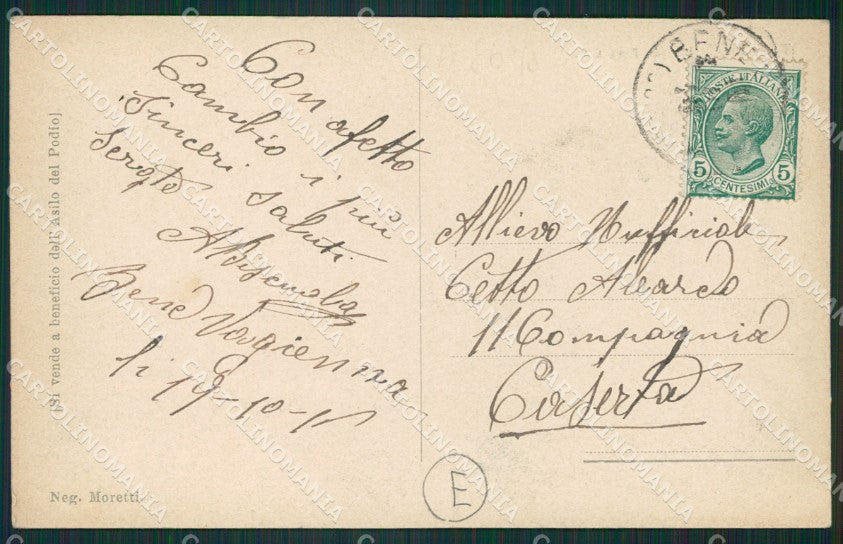 Con afetto
Cambio i più
Sinceri saluti
Sergte
Bene Vagienna
li 19-10-1
Allievo Ufficiale
Cetto Alvardo
11 Compagnia
Caserta
(Si vende a beneficio dell'Asilo del Podio)
Neg. Moretti
E
BENE
POSTE ITALIANE
5 5
CENTESIMI
CARTOLINOMANIA